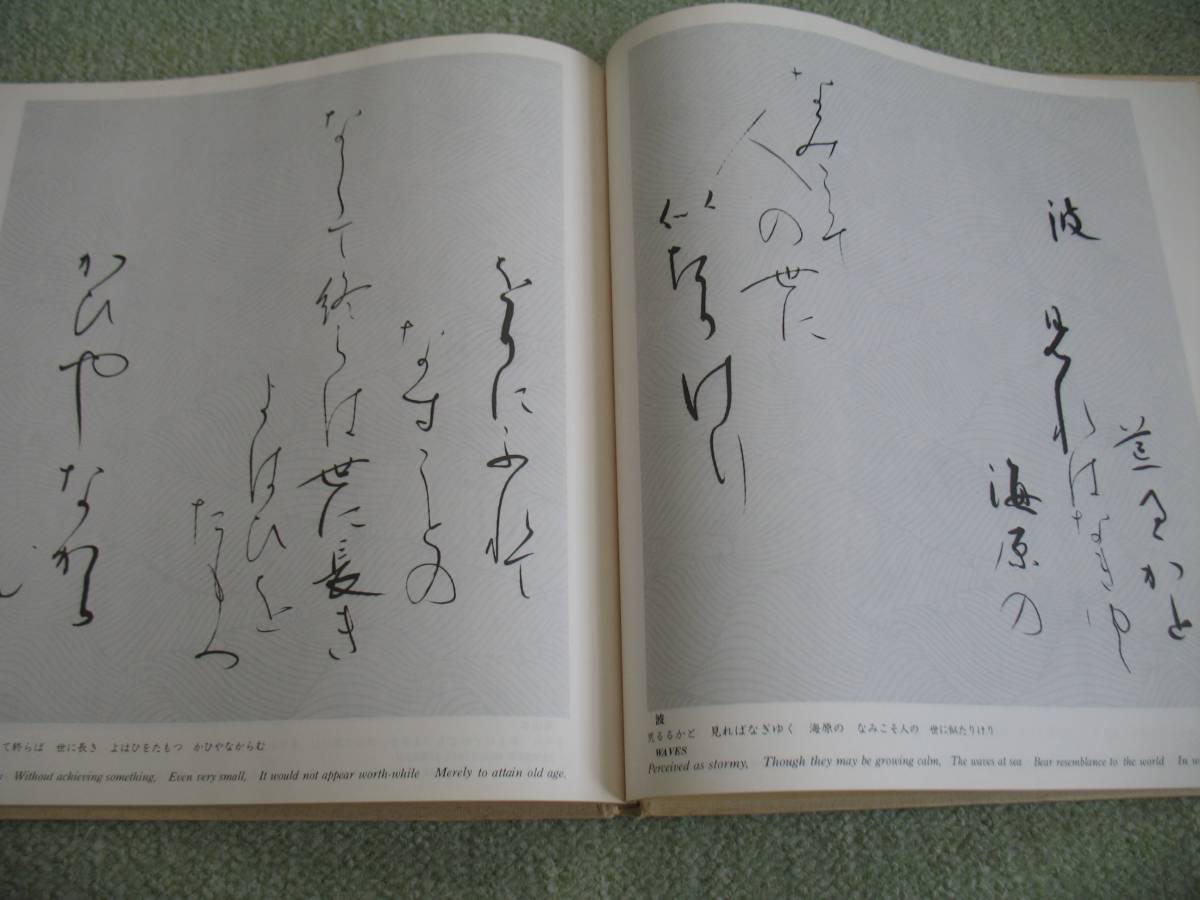 波
荒るゝかと
見れはなきゆく
海原の
なみこそ
人の世に
似たりけり
波
荒るるかと 見ればなぎゆく 海原の なみこそ人の 世に似たりけり
WAVES
Perceived as stormy, Though they may be growing calm, The waves at sea Bear resemblance to the world In
をりにふれて
なすことの
なくて終らは世に長き
よはひを
たもつ
かひやなからむ
て終らば 世に長き よはひをたもつ かひやなからむ
Without achieving something, Even very small, It would not appear worth-while Merely to attain old age.